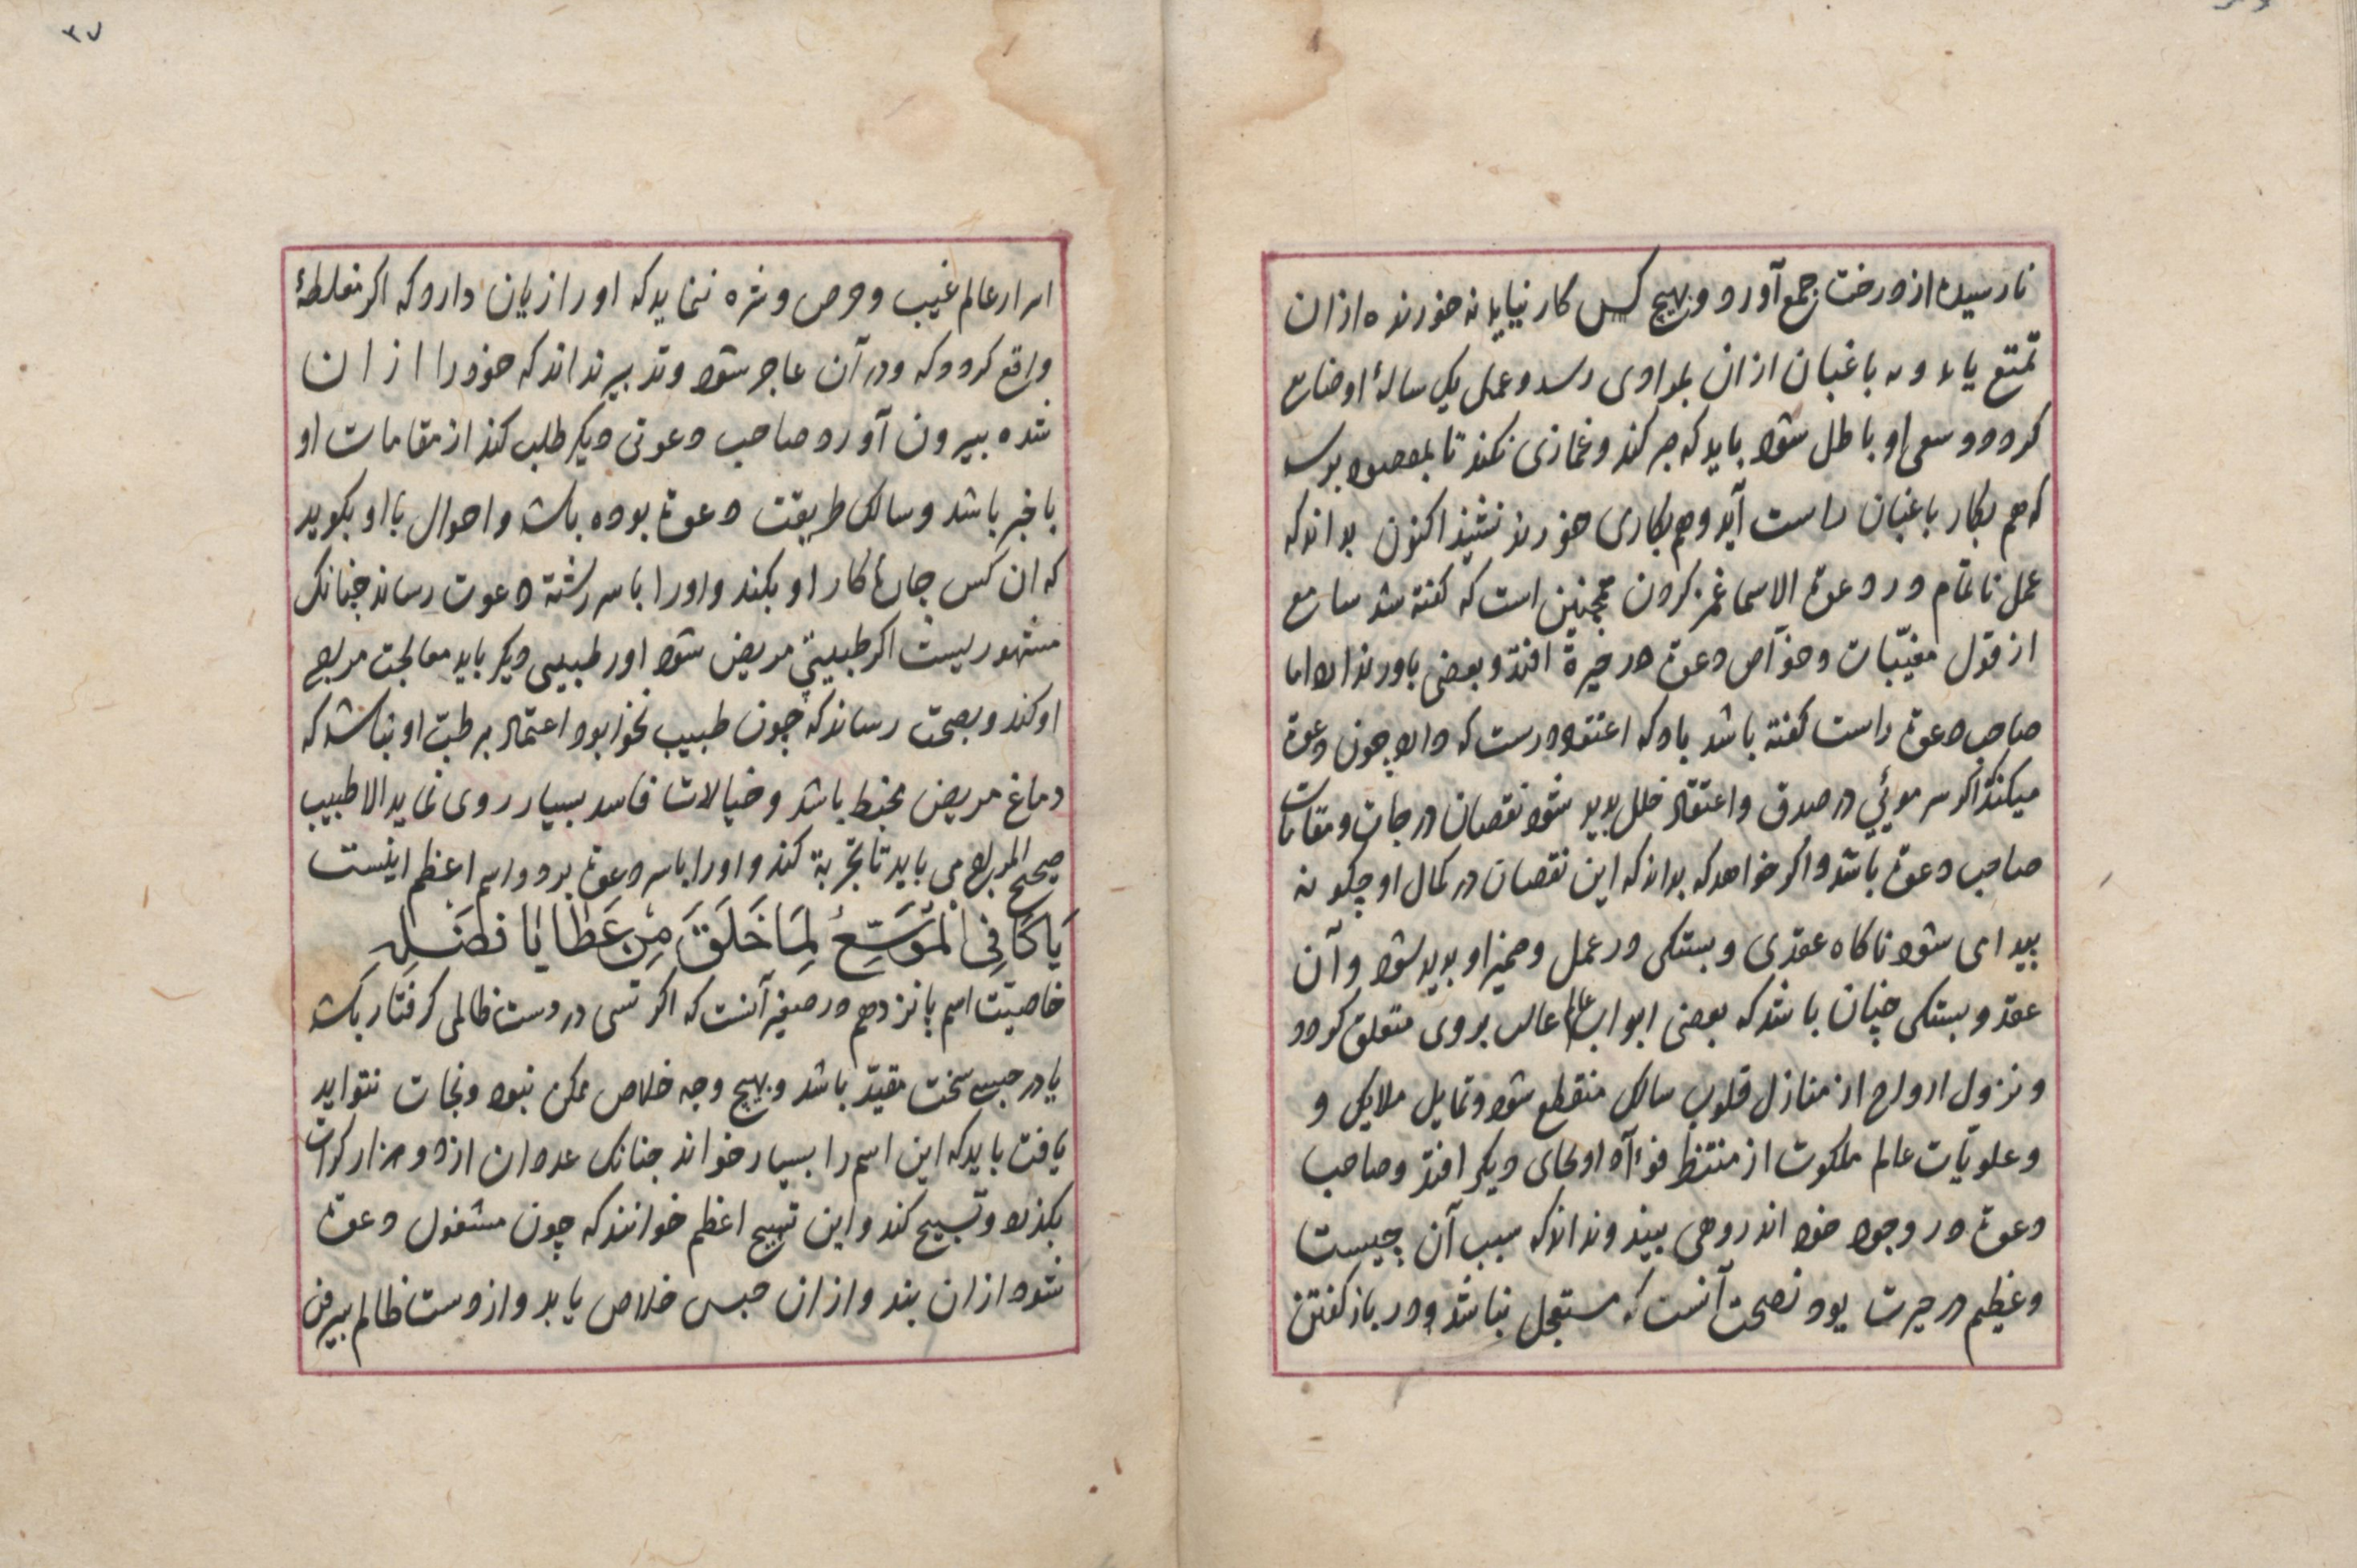 نارسیده از درخت جمع آورد و بهیچ کس کار نیاید نه خورنده از ان
تمتع یابد و نه باغبان از ان بمرادی رسد و عمل یک سالۀ او ضایع
کردد و سعی او باطل شود باید که صبر کند و غمازی نکند تا بمقصود برسد
که هم بکار باغبان راست آید و هم بکاری خورند نشیند اکنون بداند که
عمل ناتمام در دعوة الاسما غمز کردن همچنین است که کفته شد سامع
از قول مغیّبات و خوآص دعوة در حیرة افتد و بعضی باور ندارد اما
صاحب دعوة راست کفته باشد باد که اعتقاد درست که دارد چون دعوة
میکند اکر سر موئي در صدق و اعتقاد خلل پدید شود نقصان درجات و مقامات
صاحب دعوة باشد و اکر خواهد که بداند که این نقصان در کمال او چکونه
بیدای شود ناکاه عقدی و بستکی در عمل و ضمیر او بدید شود و آن
عقد و بستکی چنان باشد که بعضی ابواب عالم عالب بروی متعلق کردد
و نزول ارواح از منازل قلوب سالک منقطع شود و تمایل ملایکی و
و علویّات عالم ملکوت از منتظ فوآد او بجای دیکر افتد و صاحب
دعوة در وجود خود اندروهی بیند و نداند که سبب آن چیست
و عظیم در حیرت بود نصحت آنست که مستجل نباشد و در باز کفتن
۳۷
اسرار عالم غیب و حرص و شره ننماید که او را زیان دارد که اکر مغلطۀ
واقع کردد که در آن عاجز شود و تدبیر نداند که خود را از ان
شده بیرون آورد صاحب دعوتی دیکر طلب کند از مقامات او
باخبر باشد و سالک طریقت دعوة بوده باشد و احوال با او بکوید
که ان کس چارۀ کار او بکند و او را با سر رشتۀ دعوت رساند چنانک
مشهوریست اکر طبیبی مریض شود او را طبیبی دیکر باید معالجت مریض
او کند و بصحت رساند که چون طبیب نخوا بود اعتماد بر طبّ او نباشد که
دماغ مریض مخبط باشد و خیالات فاسد بسیار روی نماید الا طبیب
صحیح المریض می باید تا تجربة کند و او را با سر دعوة برد و اسم اعظم اینست
يَا كَافِي الْمُوَسِّعُ لِمَا خَلَقَ مِنْ عَطَايَا فَضْلِهِ
خاصیّت اسم پانزدهم در صغیر آنست که اکر کسی در دست ظالمی کرفتار باشد
یا در حبس سخت مقیّد باشد و بهیچ وجه خلاص ممکن نبود و نجات نتواند
یافت باید که این اسم را بسیار خواند چنانک عدد ان از دو هزار کرات
بکذرد و تسبیح کند و این تسبیح اعظم خوانند که چون مشغول دعوة
شود از ان بند و از ان حبس خلاص یابد و از دست ظالم بیرون